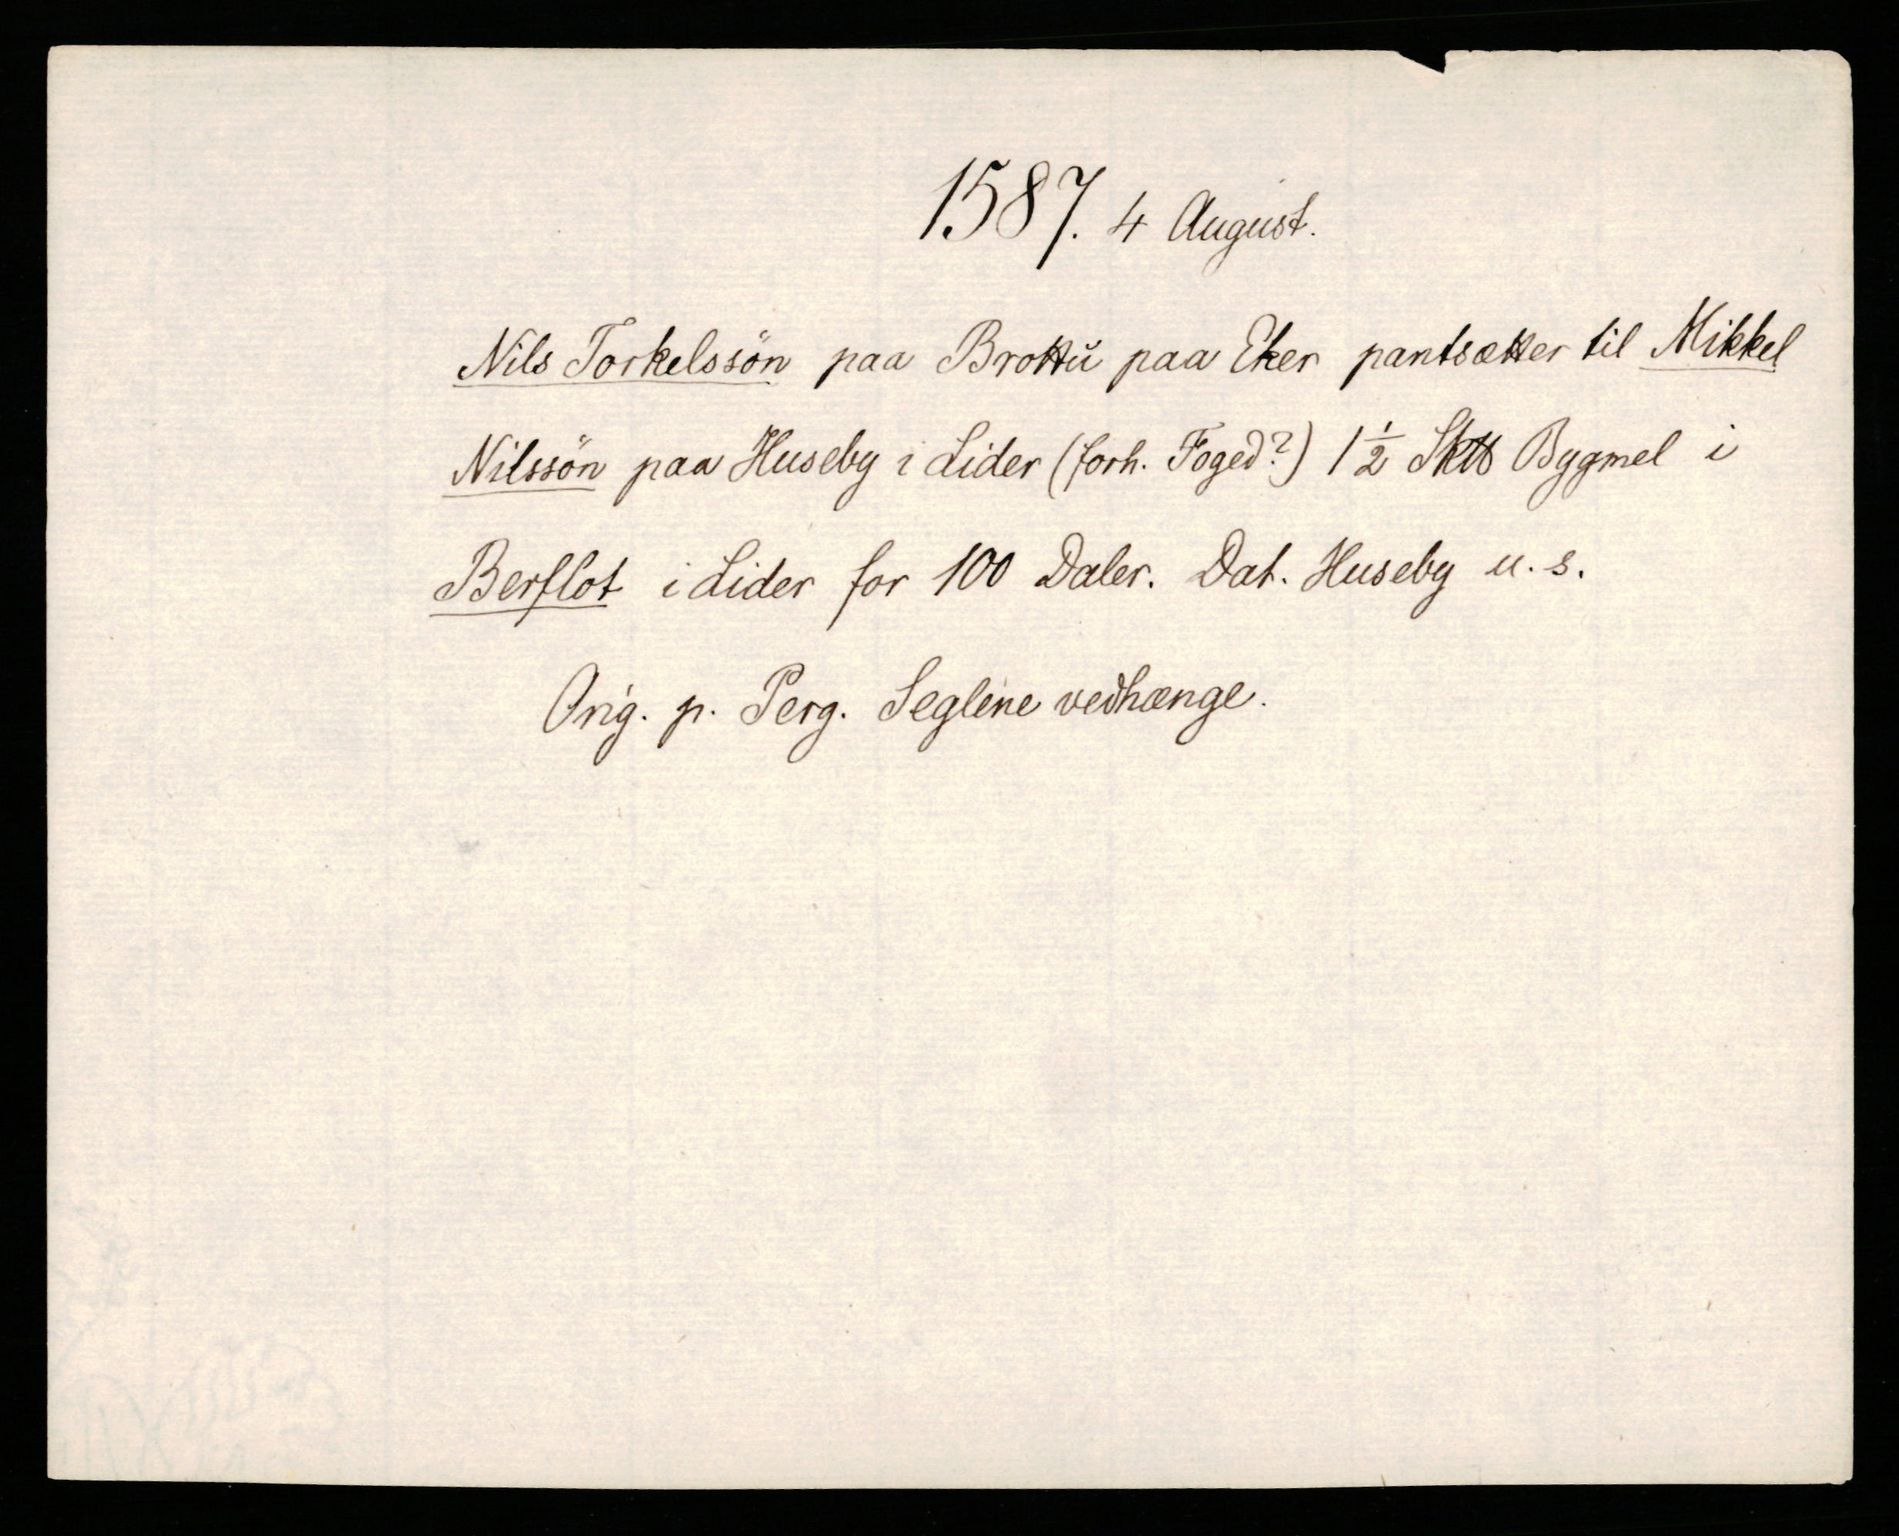 1587. 4 August.
Nils Torkelssön paa Brottŭ paa Eker pantsætter til Mikkel
Nilssön paa Huseby i Lider (forh. Foged?) 1½ Bygmel i
Berflot i Lider for 100 Daler. Dat. Huseby u. s.
Orig. p. Perg. Seglene vedhænge.